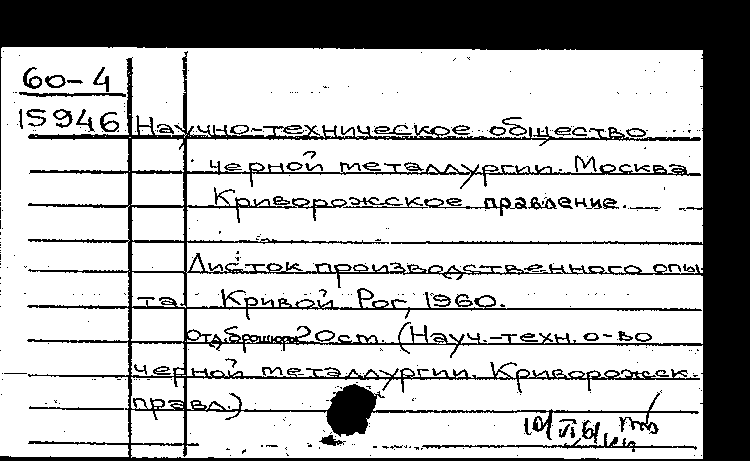 60-4
15946
Научно-техническое общество
черной металлургии. Москва
Криворожское правление.
Листок производственного опы
та. Кривой Рог, 1960.
Отд. брошюра 20 ст. (Науч.-техн. о-во
черной металлургии. Криворожск.
правл.)
10/VI,61